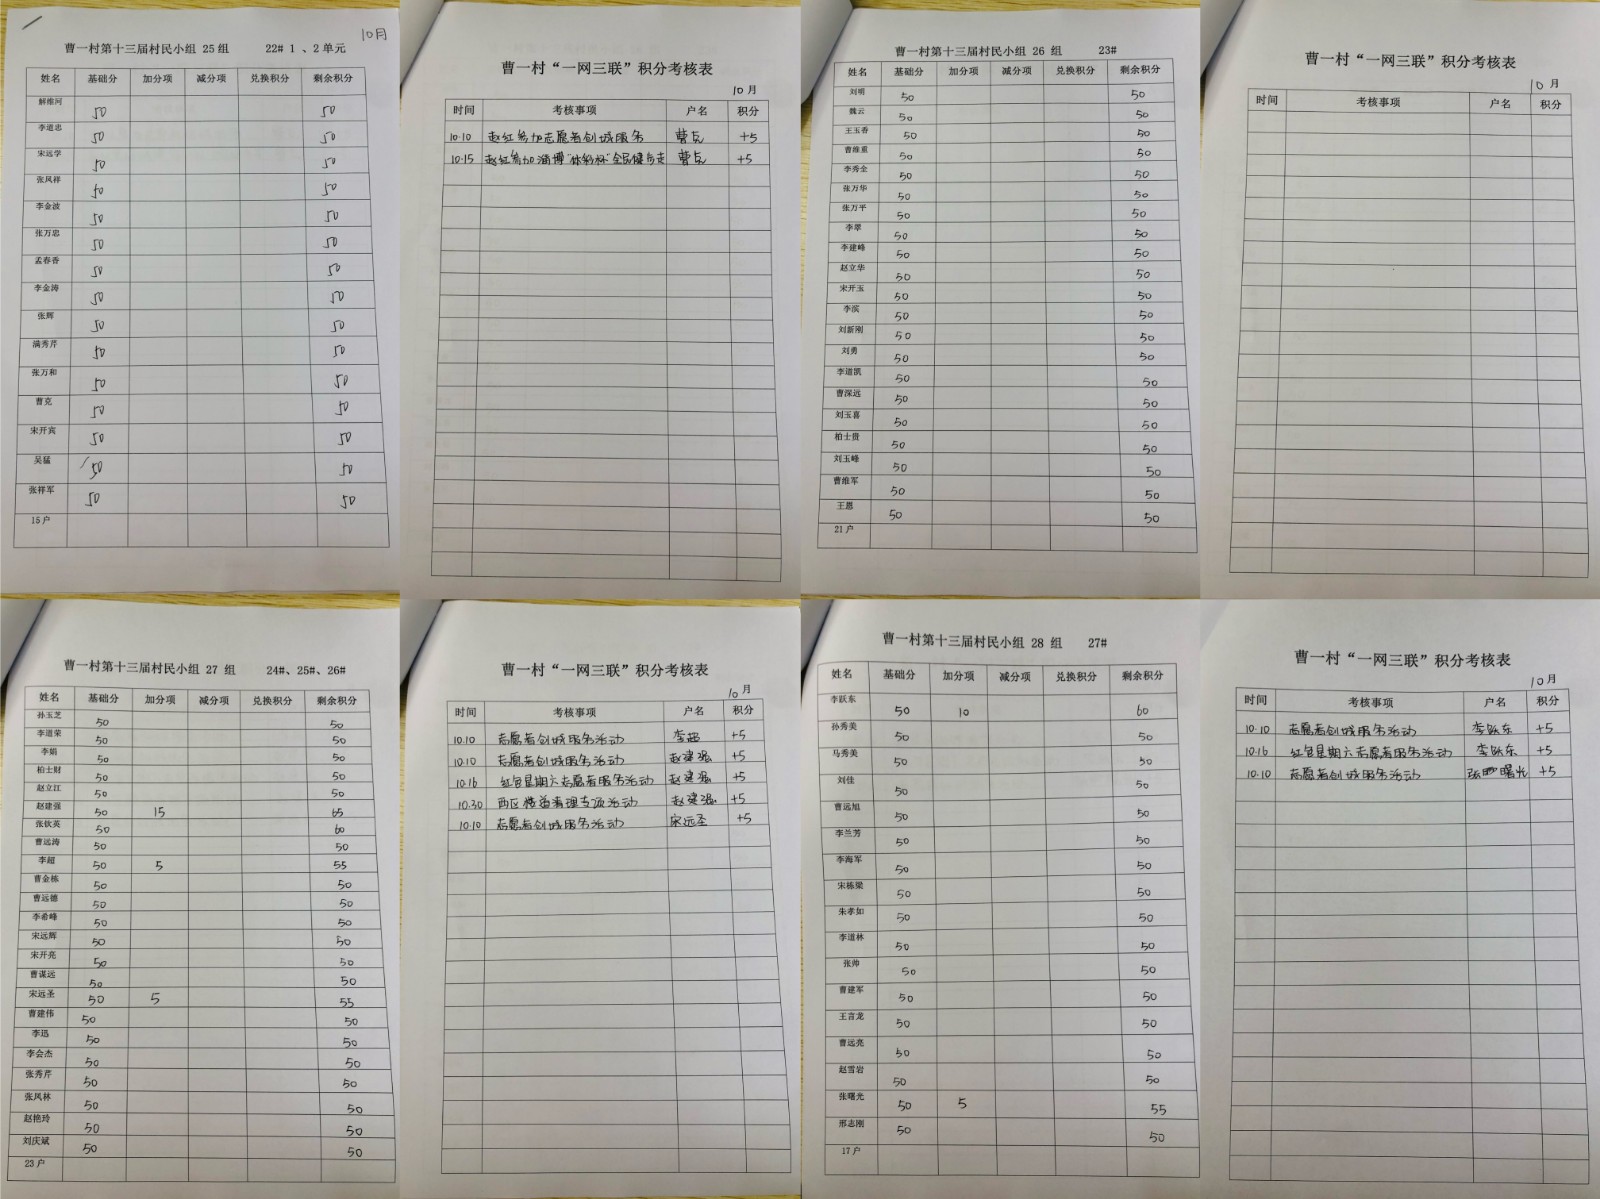 10月
曹一村第十三届村民小组 25 组 22# 1 、2 单元
姓名 基础分 加分项 减分项 兑换积分 剩余积分
解维河 50 50
李道忠 50 50
宋远学 50 50
张凤祥 50 50
李金波 50 50
张万忠 50 50
孟春香 50 50
李金涛 50 50
张辉 50 50
满秀芹 50 50
张万和 50 50
曹克 50 50
宋开宾 50 50
吴猛 50 50
张祥军 50 50
15 户
曹一村“一网三联”积分考核表
10 月
时间 考核事项 户名 积分
10.10 赵红参加志愿者创城服务 曹克 +5
10.15 赵红参加淄博“体彩杯”全民健步走 曹克 +5
曹一村第十三届村民小组 26 组 23#
姓名 基础分 加分项 减分项 兑换积分 剩余积分
刘明 50 50
魏云 50 50
王玉香 50 50
曹维重 50 50
李秀全 50 50
张万华 50 50
张万平 50 50
李翠 50 50
李建峰 50 50
赵立华 50 50
宋开玉 50 50
李滨 50 50
刘新刚 50 50
刘勇 50 50
李道凯 50 50
曹深远 50 50
刘玉喜 50 50
柏士贵 50 50
刘玉峰 50 50
曹维军 50 50
王恩 50 50
21 户
曹一村“一网三联”积分考核表
10 月
时间 考核事项 户名 积分
曹一村第十三届村民小组 27 组 24#、25#、26#
姓名 基础分 加分项 减分项 兑换积分 剩余积分
孙玉芝 50 50
李道荣 50 50
李娟 50 50
柏士财 50 50
赵立江 50 50
赵建强 50 15 65
张钦英 50 60
曹远涛 50 50
李超 50 5 55
曹金栋 50 50
曹远德 50 50
李希峰 50 50
宋远辉 50 50
宋开亮 50 50
曹谋远 50 50
宋远圣 50 5 55
曹建伟 50 50
李迅 50 50
李会杰 50 50
张秀芹 50 50
张凤林 50 50
赵艳玲 50 50
刘庆斌 50 50
23 户
曹一村“一网三联”积分考核表
10 月
时间 考核事项 户名 积分
10.10 志愿者创城服务活动 李超 +5
10.10 志愿者创城服务活动 赵建强 +5
10.16 红色星期六志愿者服务活动 赵建强 +5
10.30 西区楼道清理专项活动 赵建强 +5
10.10 志愿者创城服务活动 宋远圣 +5
曹一村第十三届村民小组 28 组 27#
姓名 基础分 加分项 减分项 兑换积分 剩余积分
李跃东 50 10 60
孙秀美 50 50
马秀美 50 50
刘佳 50 50
曹远旭 50 50
李兰芳 50 50
李海军 50 50
宋栋梁 50 50
朱孝如 50 50
李道林 50 50
张帅 50 50
曹建军 50 50
王言龙 50 50
曹远亮 50 50
赵雪岩 50 50
张曙光 50 5 55
邢志刚 50 50
17 户
曹一村“一网三联”积分考核表
10 月
时间 考核事项 户名 积分
10.10 志愿者创城服务活动 李跃东 +5
10.16 红色星期六志愿者服务活动 李跃东 +5
10.10 志愿者创城服务活动 张曙光 +5